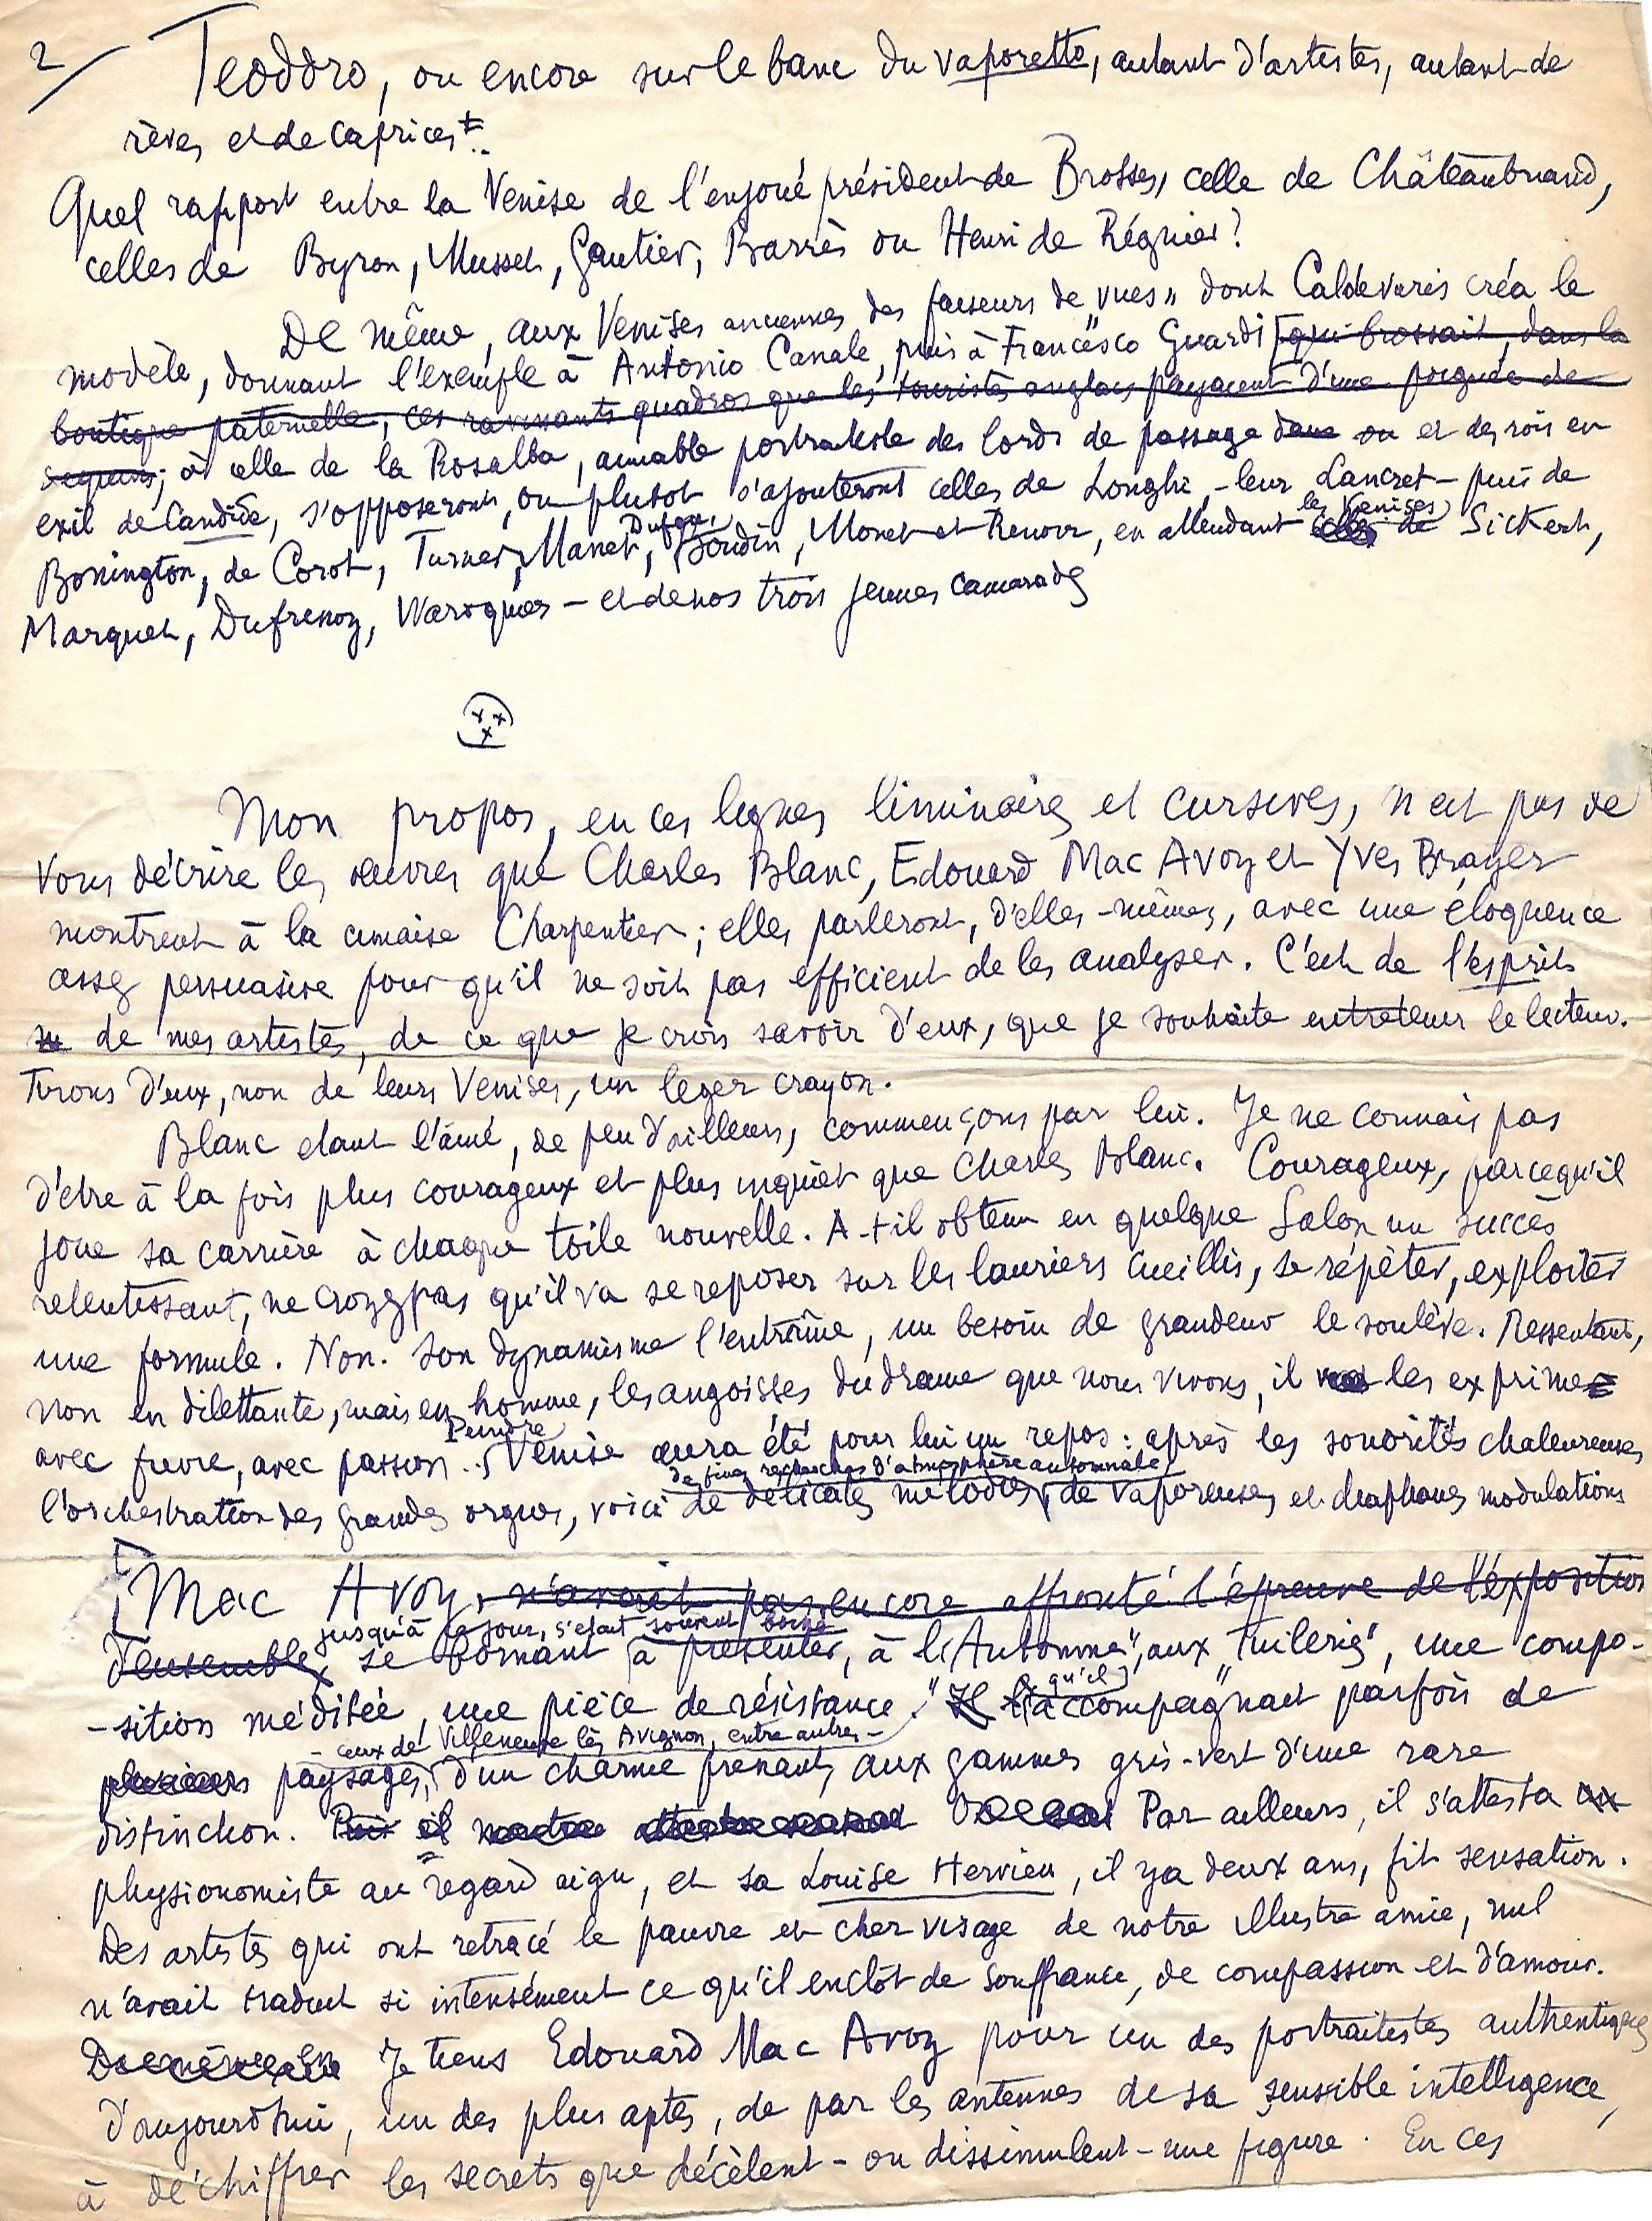 2/ Teodoro, ou encore sur le banc du vaporetto, autant d'artistes, autant de
rêves et de caprices..
Quel rapport entre la Venise de l'enjoué président de Brosses, celle de Châteaubriand,
celles de Byron, Musset, Gautier, Barrès ou Henri de Régnier?
De même, aux Venises anciennes des faiseurs de vues" dont Caldevaris créa le
modèle, donnant l'exemple à Antonio Canale, puis à Francesco Guardi [qui brossait, dans la
boutique paternelle, ces ravissants quadros que les touristes anglais payaient d'une poignée de
sequins; à celle de la Rosalba, aimable portraitiste des lords de passage dans ou et des rois en
exil de Candide, s'opposeront, ou plutot s'ajouteront celles de Longhi, -leur Lancret- puis de
les Venises
Bonington, de Corot, Turner, Manet, Boudin, Monet et Renoir, en attendant celles de Sickert,
Marquet, Dufrenoy, Waroquier - et de nos trois jeunes camarades
x x
x
Mon propos, en ces lignes liminaires et cursives, n'est pas de
vous décrire les œuvres que Charles Blanc, Edouard Mac Avoy et Yves Brayer
montrent à la cimaise Charpentier; elles parleront, d'elles-mêmes, avec une éloquence
assez persuasive pour qu'il ne soit pas efficient de les analyser. C'est de l'esprit
de mes artistes, de ce que je crois savoir d'eux, que je souhaite entretenir le lecteur.
Tirons d'eux, non de leurs Venises, un leger crayon.
Blanc etant l'aîné, de peu d'ailleurs, commençons par lui. Je ne connais pas
d'etre à la fois plus courageux et plus inquiet que Charles Blanc. Courageux, parcequ'il
joue sa carrière à chaque toile nouvelle. A-t-il obtenu en quelque Salon un succès
retentissant, ne croyez pas qu'il va se reposer sur les lauriers cueillis, se répéter, exploiter
une formule. Non. Son dynamisme l'entraîne, un besoin de grandeur le soulève. Ressentant,
non en dilettante, mais en homme, les angoisses du drame que nous vivons, il les exprime
Peindre
avec fievre, avec passion.. Venise aura été pour lui un repos: après les sonorités chaleureuses
de fines recherches d'atmosphère automnale
l'orchestration des grandes orgues, voici de délicates mélodies, de vaporeuses et diaphanes modulations
[Mac Avoy, n'avait pas encore affronté l'épreuve de l'exposition
jusqu'à ce jour, s'était souvent borné
d'ensemble, se bornant à présenter, à l'"Automne", aux "Tuileries", une compo-
qu'il
-sition méditée, une pièce de résistance." Il l'accompagnait parfois de
- ceux de Villeneuve lès Avignon, entre autres -
plusieurs paysages, d'un charme prenant, aux gammes gris-vert d'une rare
distinction. Puis il Par ailleurs, il s'attesta
physionomiste au regard aigu, et sa Louise Hervieu, il y a deux ans, fit sensation.
Des artistes qui ont retracé le pauvre et cher visage de notre illustre amie, nul
n'avait traduit si intensément ce qu'il enclôt de souffrance, de compassion et d'amour.
Je tiens Edouard Mac Avoy pour un des portraitistes authentiques
d'aujourd'hui, un des plus aptes, de par les antennes de sa sensible intelligence,
à déchiffrer les secrets que décèlent - ou dissimulent - une figure. En ces